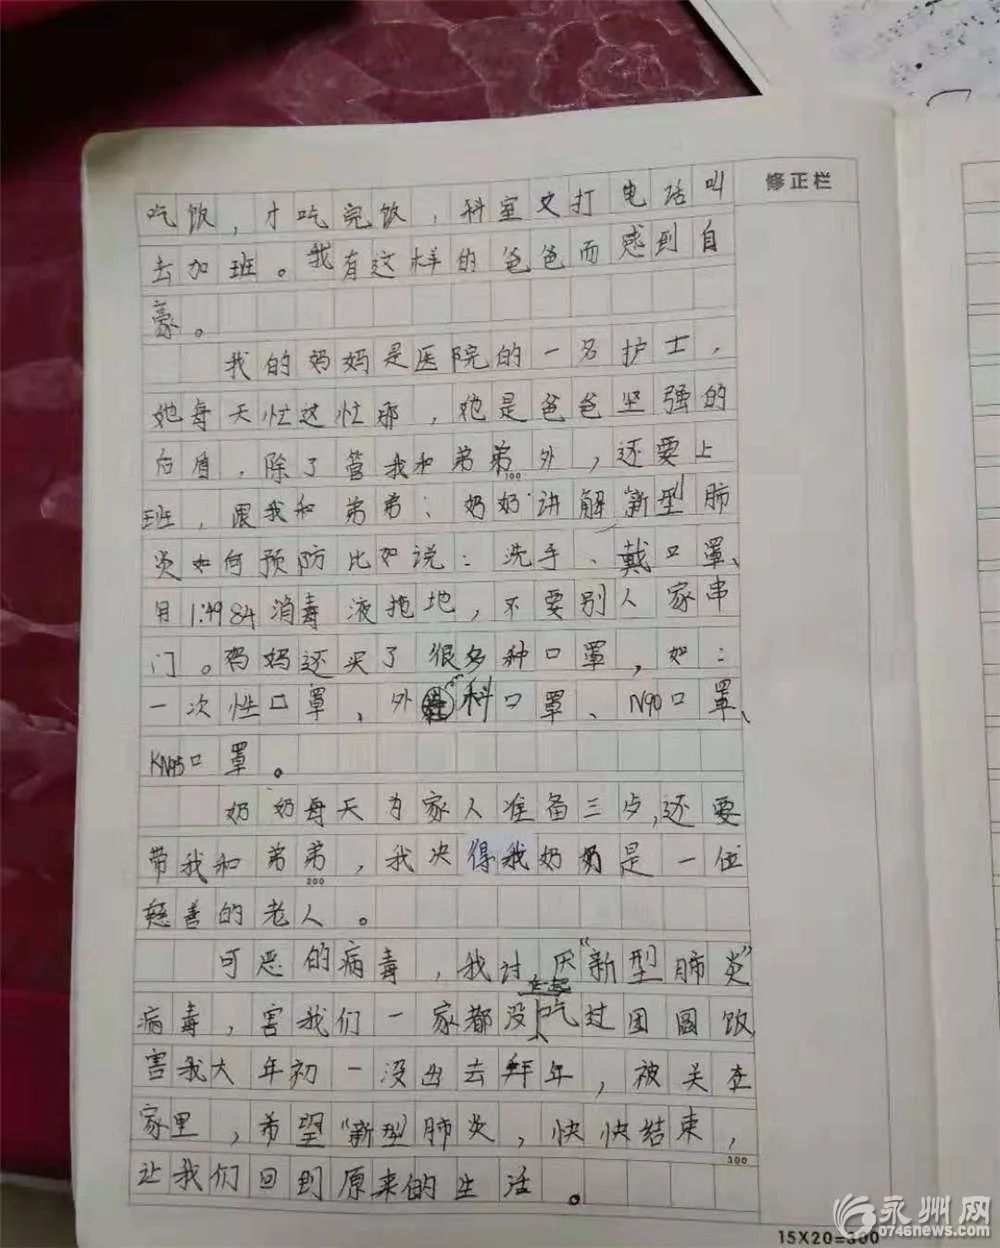 修正栏
吃饭，才吃完饭，科室又打电话叫
去加班。我有这样的爸爸而感到自
豪。
我的妈妈是医院的一名护士，
她每天忙这忙那，她是爸爸坚强的
后盾，除了管我和弟弟外，还要上
100
班，跟我和弟弟、奶奶讲解新型肺
炎如何预防比如说：洗手、戴口罩、
用1:4984消毒液拖地，不要别人家串
门。妈妈还买了很多种口罩，如：
一次性口罩、外科口罩、N90口罩、
KN95口罩。
奶奶每天为家人准备三歺，还要
带我和弟弟，我决得我奶奶是一位
200
慈善的老人。
可恶的病毒，我讨厌“新型肺炎”
病毒，害我们一家都没在起吃过团圆饭
害我大年初一没出去拜年，被关在
家里，希望“新型肺炎，快快结束，
300
让我们回到原来的生活。
15X20=300
永州网
0746news.com